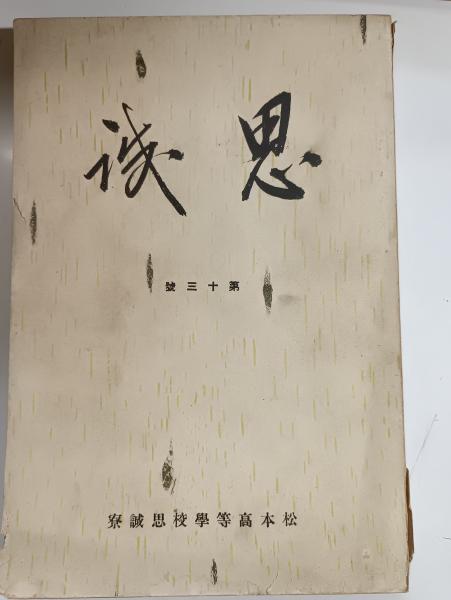 思誠
第十三號
松本高等學校思誠寮